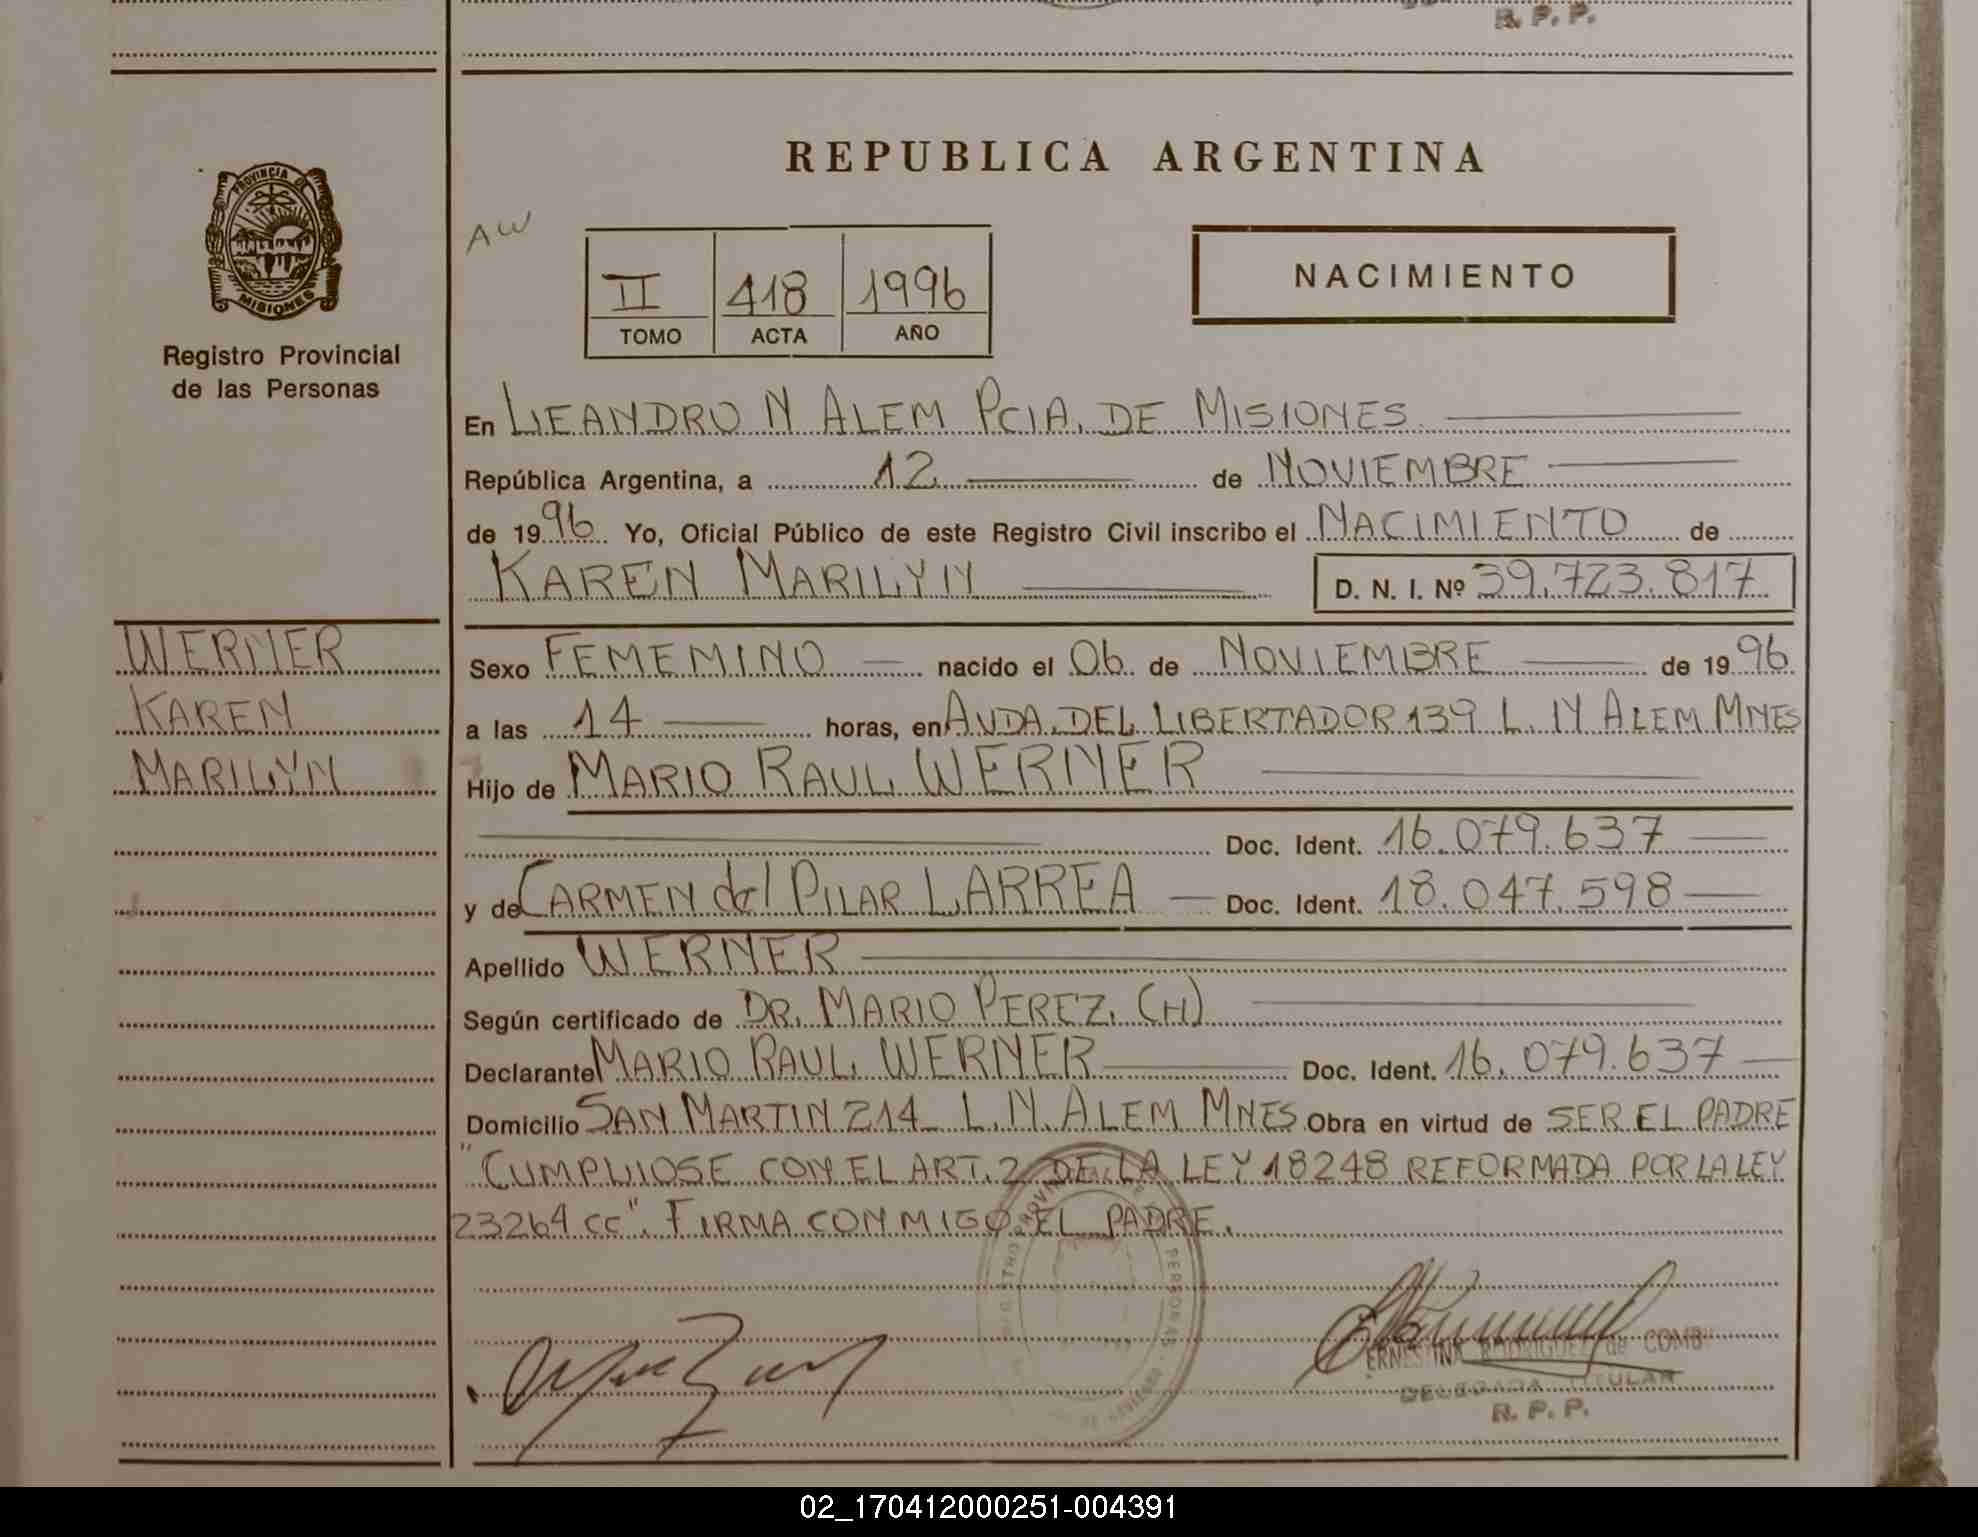 R. P. P.
REPUBLICA ARGENTINA
PROVINCIA DE
MISIONES
Registro Provincial
de las Personas
AW
II 418 1996
TOMO ACTA AÑO
NACIMIENTO
En LEANDRO N ALEM PCIA. DE MISIONES
República Argentina, a 12 de NOVIEMBRE
de 1996 Yo, Oficial Público de este Registro Civil inscribo el NACIMIENTO de
KAREN MARILYN D. N. I. Nº 39.723.817
WERNER
KAREN
MARILYN
Sexo FEMEMINO nacido el 06 de NOVIEMBRE de 1996
a las 14 horas, en AVDA. DEL LIBERTADOR 139 L. N ALEM MNES
Hijo de MARIO RAUL WERNER
Doc. Ident. 16.079.637
y de CARMEN del PILAR LARREA Doc. Ident. 18.047.598
Apellido WERNER
Según certificado de DR. MARIO PEREZ. (H)
Declarante MARIO RAUL WERNER Doc. Ident. 16.079.637
Domicilio SAN MARTIN 214 L.N. ALEM MNES Obra en virtud de SER EL PADRE
"CUMPLIOSE CON EL ART. 2 DE LA LEY 18248 REFORMADA POR LA LEY
23264 CC". FIRMA CONMIGO EL PADRE.
ERNESTINA RODRIGUEZ de COMB
DELEGADA TITULAR
R. P. P.
02_170412000251-004391